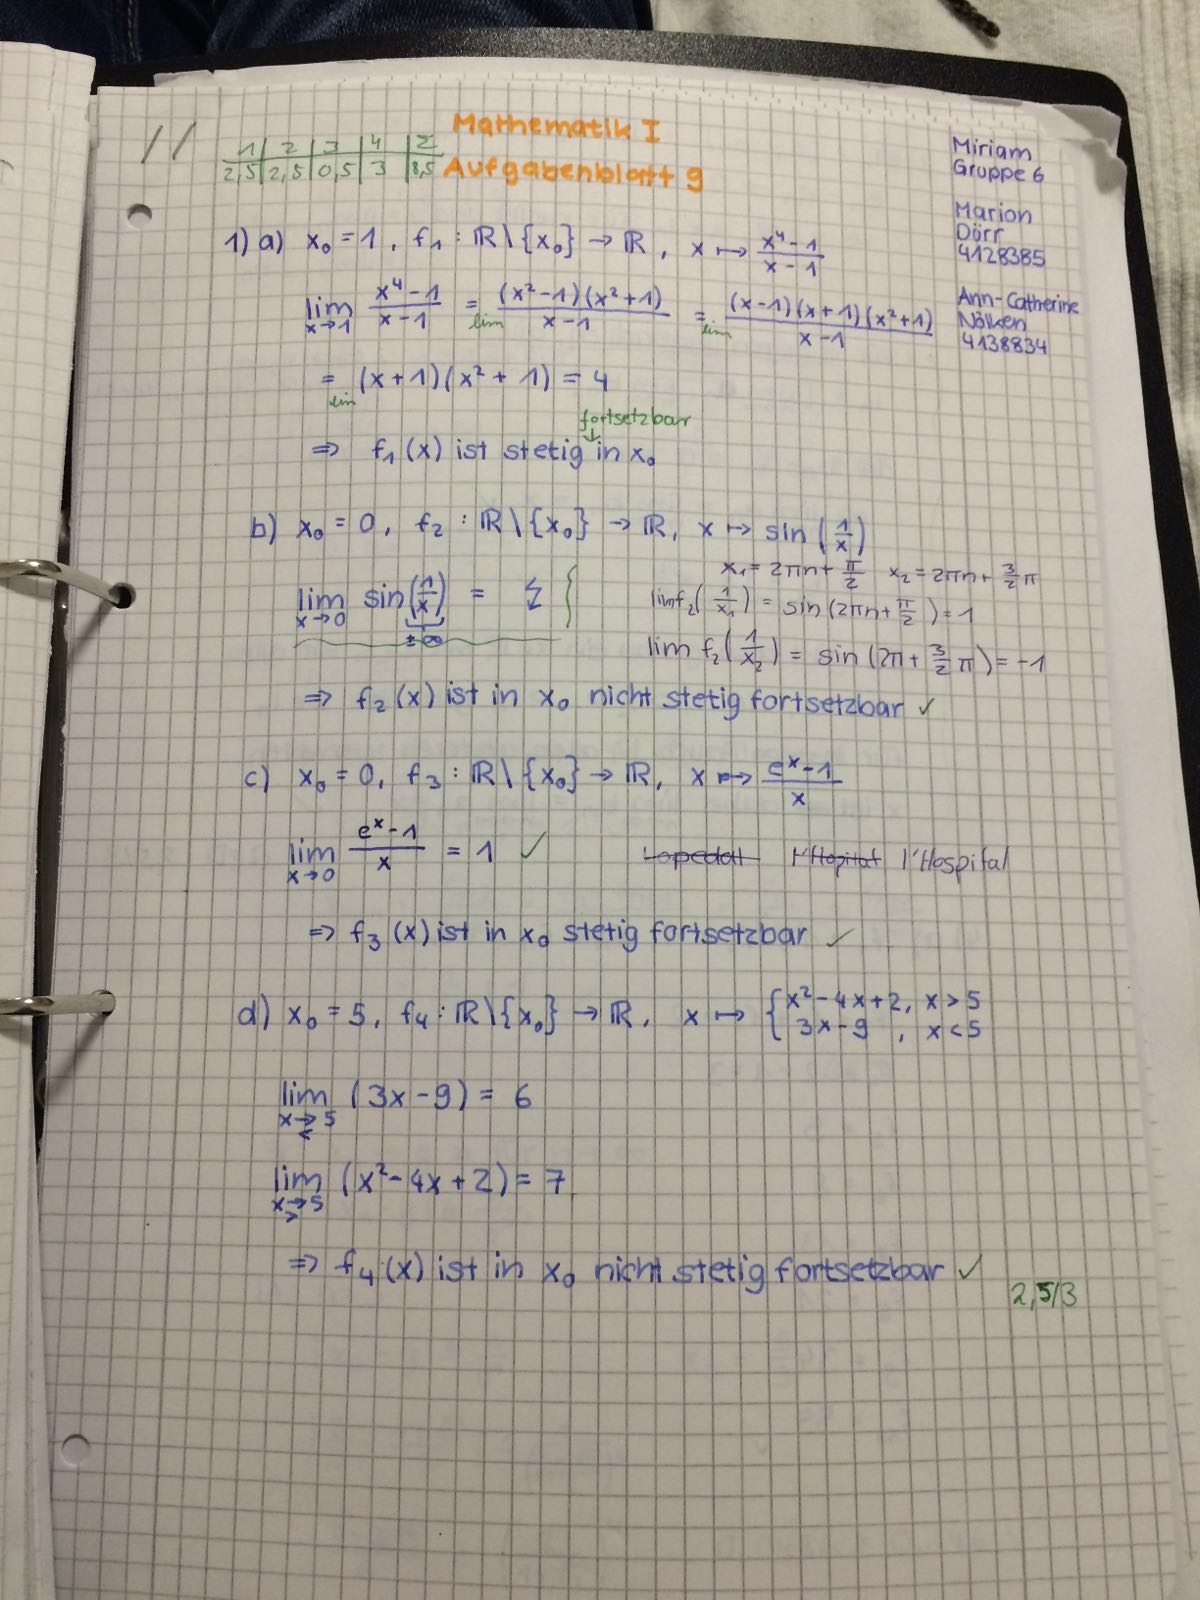 Mathematik I
Aufgabenblatt 9
11
1 | 2 | 3 | 4 | Σ
2,5 | 2,5 | 0,5 | 3 | 8,5
Miriam
Gruppe 6
Marion
Dörr
4128385
Ann-Catherine
Nölken
4138834
1) a) x₀ = 1, f₁ : ℝ\{x₀} → ℝ, x ↦ (x⁴-1)/(x-1)
lim x→1 (x⁴-1)/(x-1) = lim (x²-1)(x²+1)/(x-1) = lim (x-1)(x+1)(x²+1)/(x-1)
= lim (x+1)(x²+1) = 4
fortsetzbar
⇒ f₁(x) ist stetig in x₀
b) x₀ = 0, f₂ : ℝ\{x₀} → ℝ, x ↦ sin(1/x)
x₁ = 2πn + π/2 x₂ = 2πn + 3/2 π
lim x→0 sin(1/x) = ↯
± ∞
lim f₂(1/x₁) = sin(2πn + π/2) = 1
lim f₂(1/x₂) = sin(2π + 3/2 π) = -1
⇒ f₂(x) ist in x₀ nicht stetig fortsetzbar ✓
c) x₀ = 0, f₃ : ℝ\{x₀} → ℝ, x ↦ (eˣ-1)/x
lim x→0 (eˣ-1)/x = 1 ✓ l'Hopital l'Hospital
⇒ f₃(x) ist in x₀ stetig fortsetzbar ✓
d) x₀ = 5, f₄ : ℝ\{x₀} → ℝ, x ↦ { x²-4x+2, x > 5
3x-9, x < 5
lim x→5 < (3x-9) = 6
lim x→5 > (x²-4x+2) = 7
⇒ f₄(x) ist in x₀ nicht stetig fortsetzbar ✓
2,5/3